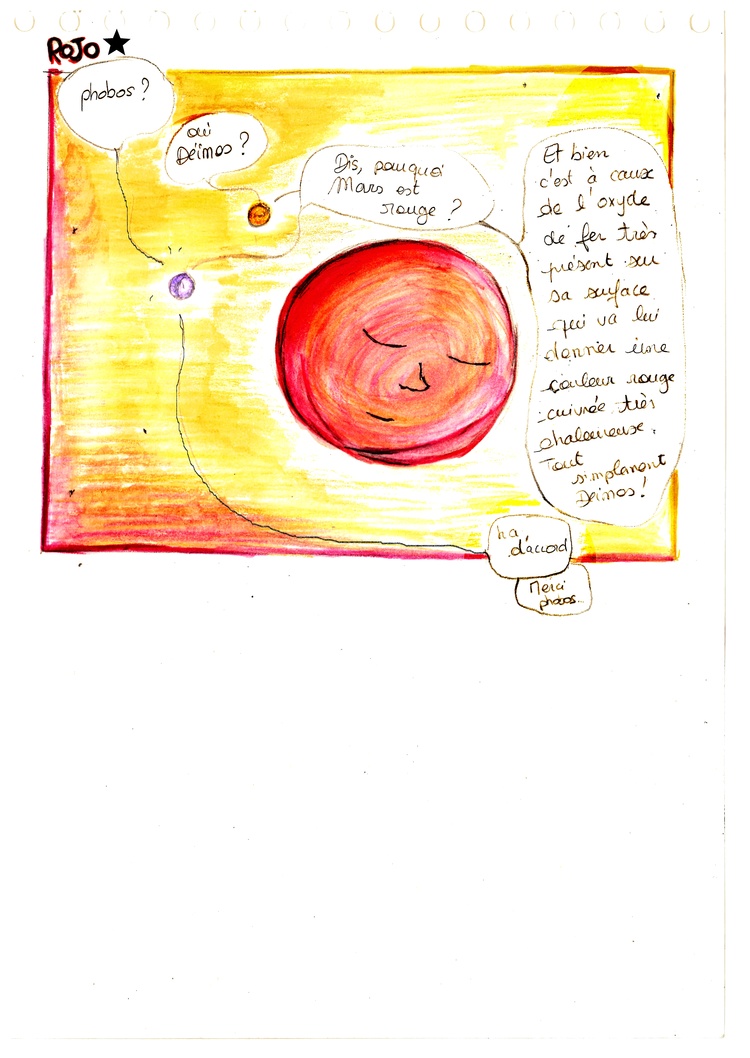 ROJO
phobos ?
oui
Déïmos ?
Dis, pourquoi
Mars est
rouge ?
Et bien
c'est à caux
de l'oxyde
de fer très
présent sur
sa surface
qui va lui
donner une
couleur rouge
cuivrée très
chaleureuse.
Tout
simplement
Deimos !
ha
d'accord
Merci
phobos...